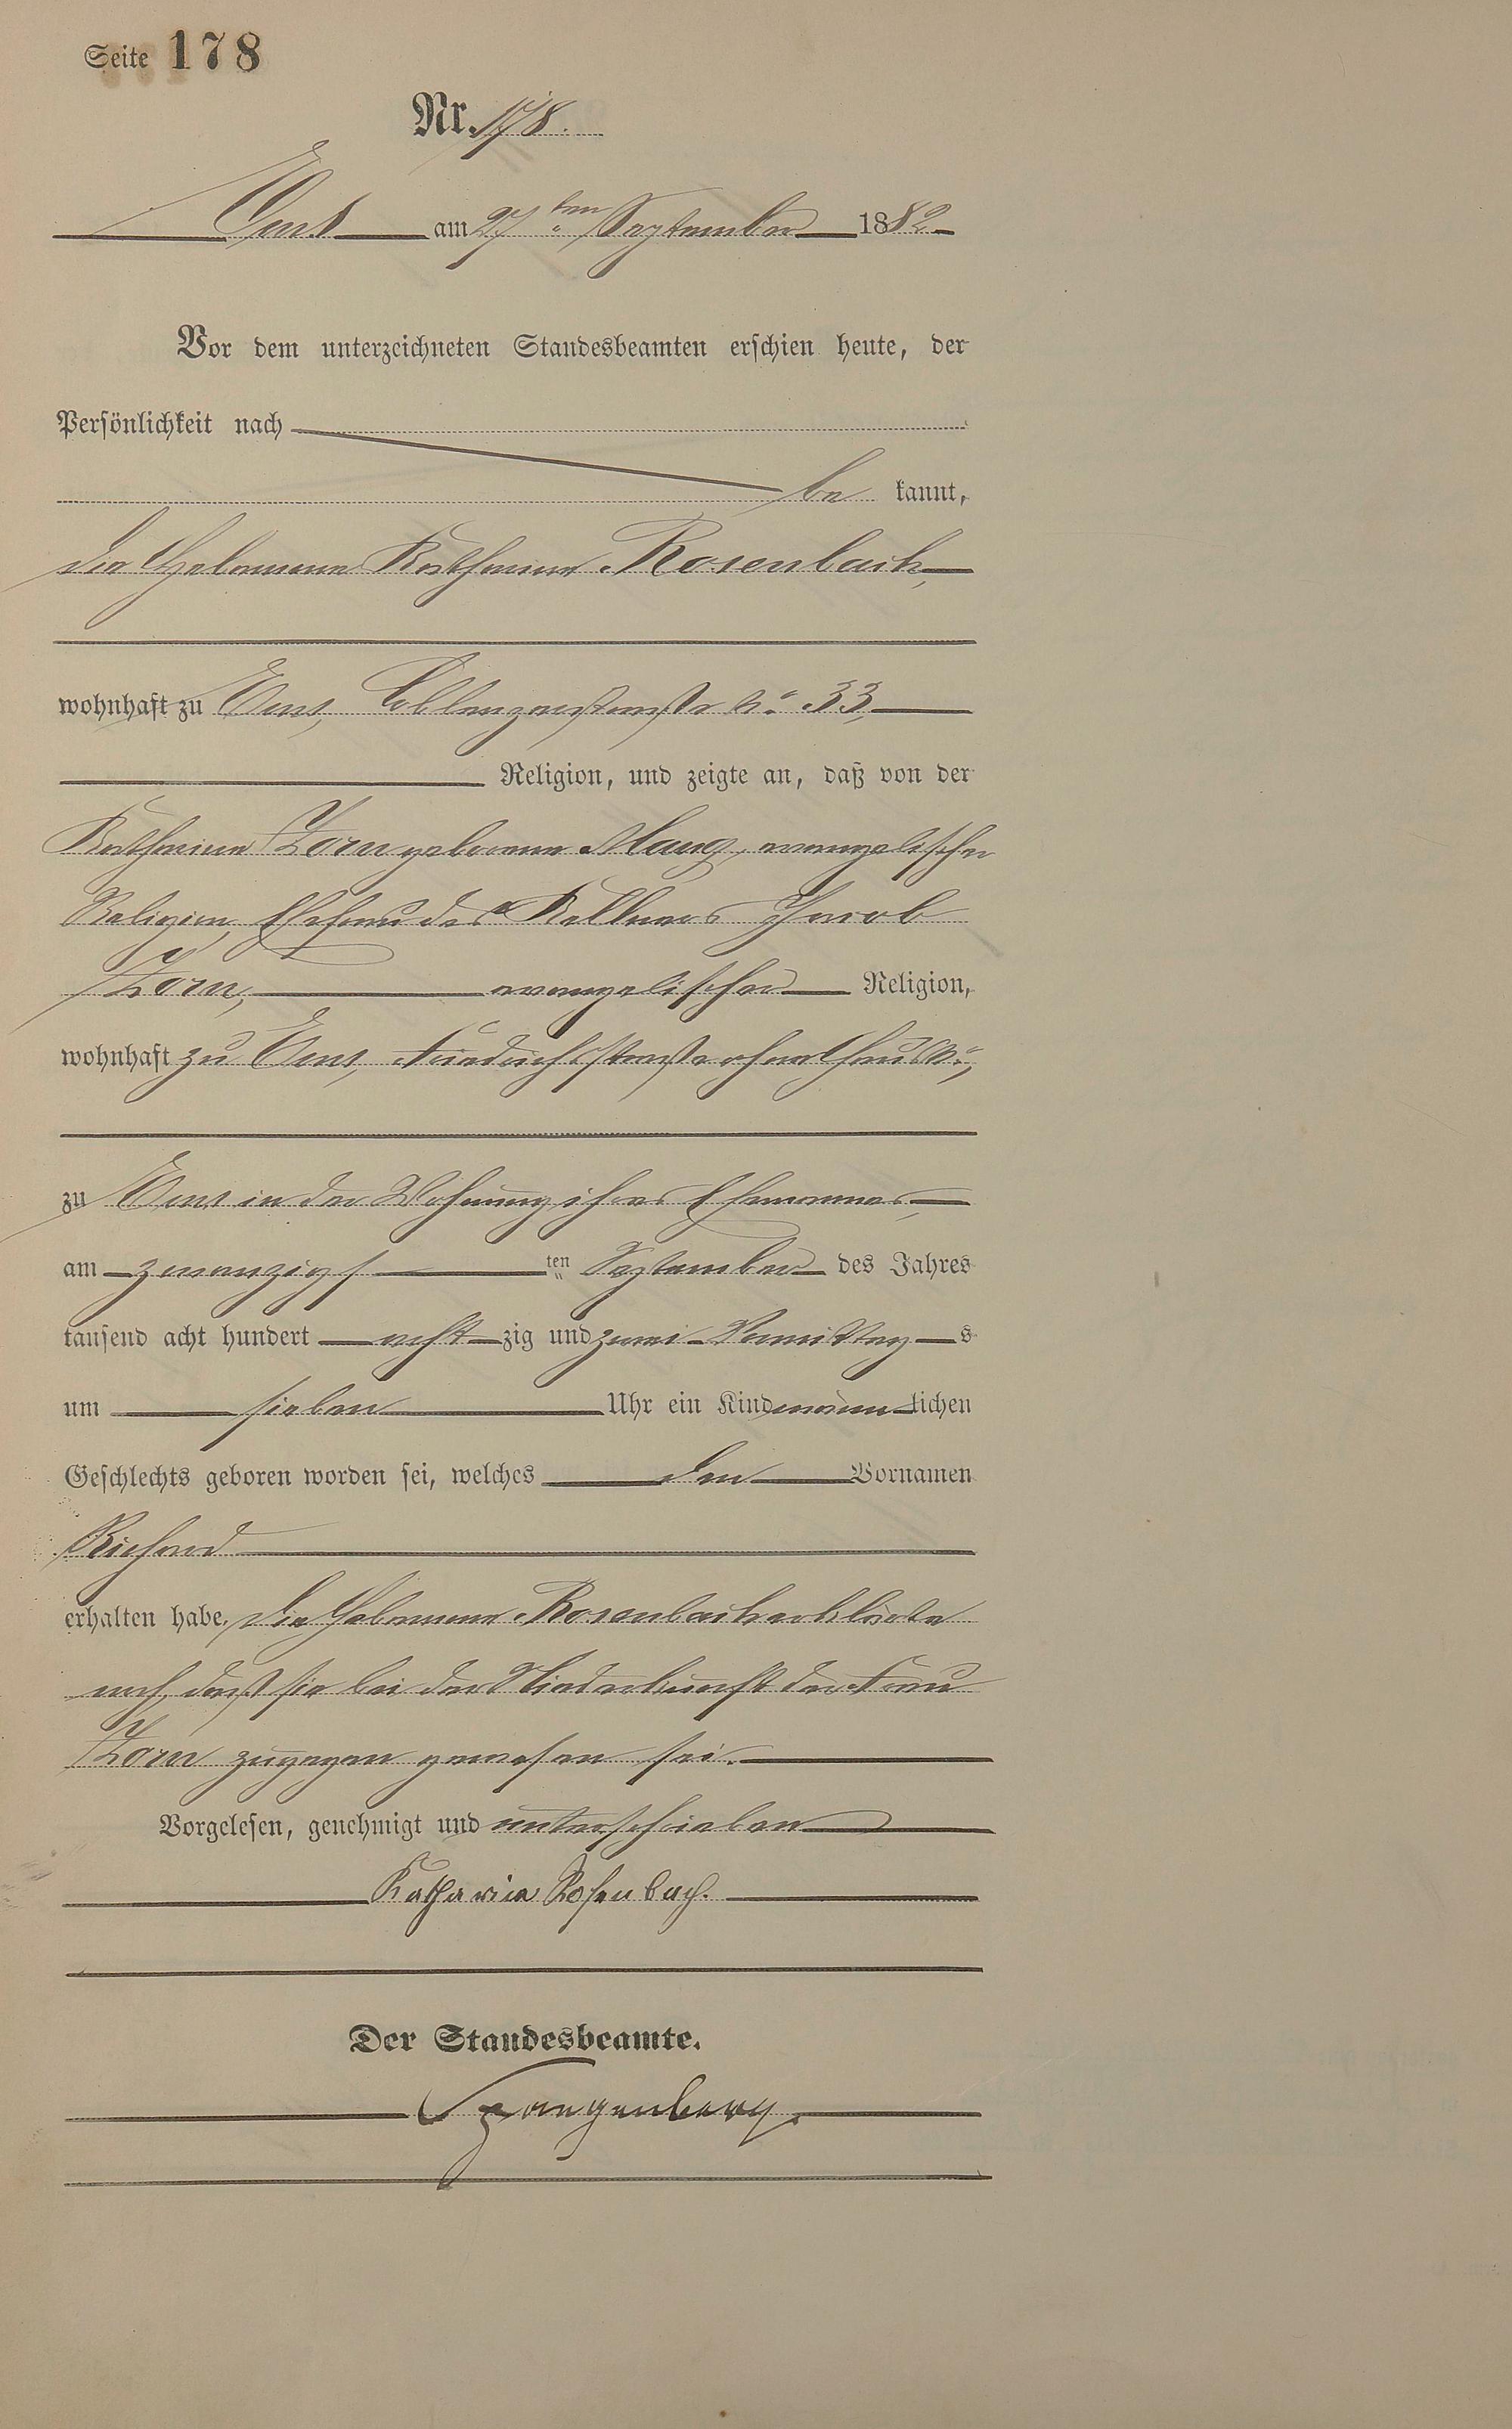 Seite 178
Nr. 178.
Ems am 27ten September 1882
Vor dem unterzeichneten Standesbeamten erschien heute, der
Persönlichkeit nach
be kannt,
die Hebamme Katharina Rosenbach,
wohnhaft zu Ems, Coblenzerstraße No. 33,
Religion, und zeigte an, daß von der
Katharina Zorn geborene Mang, evangelischer
Religion, Ehefrau des Kellners Jacob
Zorn, evangelischer Religion,
wohnhaft zu Ems, Friedrichsstraße ohne Haus No.,
zu Ems in der Wohnung ihres Ehemannes,
am zwanzigsten September des Jahres
tausend acht hundert acht zig und zwei Vormittag s
um sieben Uhr ein Kind männlichen
Geschlechts geboren worden sei, welches den Vornamen
Richard
erhalten habe. Die Hebamme Rosenbach erklärte
noch, daß sie bei der Niederkunft der Frau
Zorn zugegen gewesen sei.
Vorgelesen, genehmigt und unterschrieben
Katharina Rosenbach.
Der Standesbeamte.
Spangenberg.